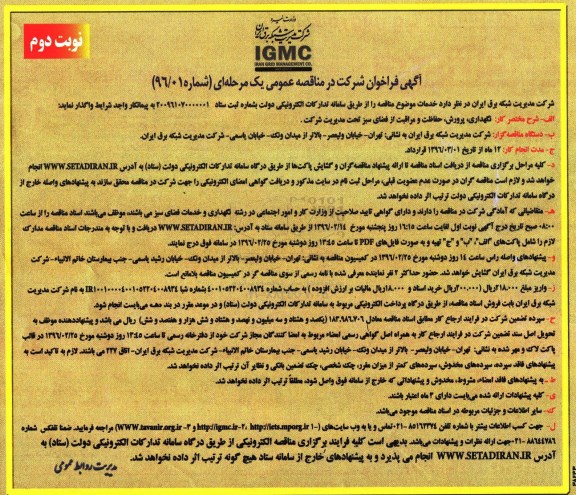 نوبت دوم
وزارت نیرو
شرکت مدیریت شبکه برق ایران
IGMC
IRAN GRID MANAGEMENT CO.
آگهی فراخوان شرکت در مناقصه عمومی یک مرحله‌ای (شماره ۹۶/۰۱)
شرکت مدیریت شبکه برق ایران در نظر دارد خدمات موضوع مناقصه را از طریق سامانه تدارکات الکترونیکی دولت بشماره ثبت ستاد ۲۰۰۹۶۱۰۷۰۰۰۰۰۰۱ به پیمانکار واجد شرایط واگذار نماید:
الف- شرح مختصر کار: نگهداری، پرورش، حفاظت و مراقبت از فضای سبز تحت مدیریت شرکت.
ب- دستگاه مناقصه‌گزار: شرکت مدیریت شبکه برق ایران به نشانی: تهران- خیابان ولیعصر- بالاتر از میدان ونک- خیابان یاسمی- شرکت مدیریت شبکه برق ایران.
ج- مدت انجام کار: ۱۲ ماه از تاریخ ۱۳۹۶/۰۳/۰۱ قرارداد.
د- کلیه مراحل برگزاری مناقصه از دریافت اسناد مناقصه تا ارائه پیشنهاد مناقصه‌گران و گشایش پاکت‌ها از طریق درگاه سامانه تدارکات الکترونیکی دولت (ستاد) به آدرس WWW.SETADIRAN.IR انجام
خواهد شد و لازم است مناقصه گران در صورت عدم عضویت قبلی، مراحل ثبت نام در سایت مذکور و دریافت گواهی امضای الکترونیکی را جهت شرکت در مناقصه محقق سازند به پیشنهادهای واصله خارج از
درگاه سامانه تدارکات الکترونیکی دولت ترتیب اثر داده نخواهد شد.
هـ- متقاضیانی که آمادگی شرکت در مناقصه را دارند و دارای گواهی تایید صلاحیت از وزارت کار و امور اجتماعی در رشته نگهداری و خدمات فضای سبز می باشند، موظف می‌باشند اسناد مناقصه را از ساعت
۰۸:۰۰ صبح تاریخ درج آگهی نوبت اول لغایت ساعت ۱۶:۱۵ روز پنجشنبه مورخ ۱۳۹۶/۰۲/۱۴ از طریق سامانه ستاد به آدرس: WWW.SETADIRAN.IR دریافت و با توجه به مندرجات اسناد مناقصه مدارک
لازم را شامل پاکت‌های "الف"، "ب" و "ج" تهیه و به صورت فایل‌های PDF تا ساعت ۱۳:۴۵ روز دوشنبه مورخ ۱۳۹۶/۰۲/۲۵ در سامانه فوق درج نمایند.
و- پیشنهادهای واصله راس ساعت ۱۴ روز دوشنبه مورخ ۱۳۹۶/۰۲/۲۵ در کمیسیون مناقصه به نشانی: تهران- خیابان ولیعصر- بالاتر از میدان ونک- خیابان رشید یاسمی- جنب بیمارستان خاتم الانبیاء- شرکت
مدیریت شبکه برق ایران گشایش خواهد شد. حضور حداکثر ۲ نفر نماینده معرفی شده با نامه رسمی از سوی مناقصه گر در کمیسیون مناقصه بلامانع است.
ز- واریز مبلغ
به نام شرکت مدیریت
شبکه برق ایران بابت فروش اسناد مناقصه، از طریق درگاه پرداخت الکترونیکی مربوط به سامانه تدارکات الکترونیکی دولت (ستاد) و در موعد مقرر در بند «هـ» می‌بایست انجام شود.
ح- سپرده تضمین شرکت در فرایند ارجاع کار مطابق اسناد مناقصه معادل ۱۸۳.۹۸۶.۷۰۶ (یکصد و هشتاد و سه میلیون و نهصد و هشتاد و شش هزار و هفتصد و شش) ریال می باشد و پیشنهاددهنده موظف به
تحویل اصل سند تضمین شرکت در فرایند ارجاع کار به همراه اصل گواهی رسمی امضاء مربوط به امضا کنندگان مجاز شرکت خود از دفترخانه رسمی تا ساعت ۱۳:۴۵ روز دوشنبه مورخ ۱۳۹۶/۰۲/۲۵ در قالب
پاکت لاک و مهر شده به نشانی: تهران- خیابان ولیعصر- بالاتر از میدان ونک- خیابان رشید یاسمی- جنب بیمارستان خاتم الانبیاء- شرکت مدیریت شبکه برق ایران- اتاق ۲۲۷ می باشند. لازم به تاکید است به
پیشنهادهای فاقد سپرده، سپرده‌های مخدوش، سپرده‌های کمتر از میزان مقرر، چک شخصی، چک تضمین بانکی و نظایر آن ترتیب اثر داده نخواهد شد.
ط- به پیشنهادهای فاقد امضاء، مشروط، مخدوش و پیشنهاداتی که خارج از سامانه فوق واصل شود، مطلقاً ترتیب اثر داده نخواهد شد.
ی- کلیه پیشنهادات ارائه شده می‌بایست دارای ۳ ماه اعتبار باشند.
ک- سایر اطلاعات و جزئیات مربوطه در اسناد مناقصه موجود می‌باشد.
ل- جهت کسب اطلاعات بیشتر با شماره تلفن ۸۵۱۶۲۳۷۴-۰۲۱ تماس و یا به وب سایت‌های (۱- http://iets.mporg.ir ۲- http://igmc.ir و ۳- WWW.tavanir.org.ir) مراجعه فرمایید. ضمنا تلفکس شماره
۸۸۶۴۴۷۸۶-۰۲۱ جهت ارائه نظرات و پیشنهادات می‌باشد. بدیهی است کلیه فرایند برگزاری مناقصه الکترونیکی از طریق درگاه سامانه تدارکات الکترونیکی دولت (ستاد) به
آدرس WWW.SETADIRAN.IR انجام می پذیرد و به پیشنهادهای خارج از سامانه ستاد هیچ گونه ترتیب اثر داده نخواهد شد.
مدیریت روابط عمومی